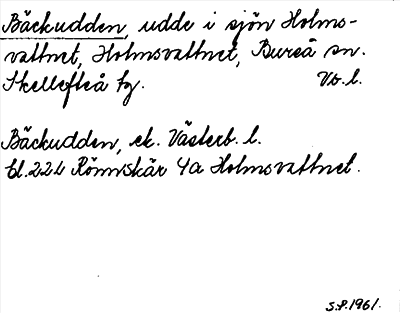 Bäckudden, udde i sjön Holms-
vattnet, Holmsvattnet, Bureå sn.
Skellefteå tg. Vb. l.
Bäckudden, ek. Västerb. l.
bl. 22 L Rönnskär 4a Holmsvattnet.
S.P. 1961.